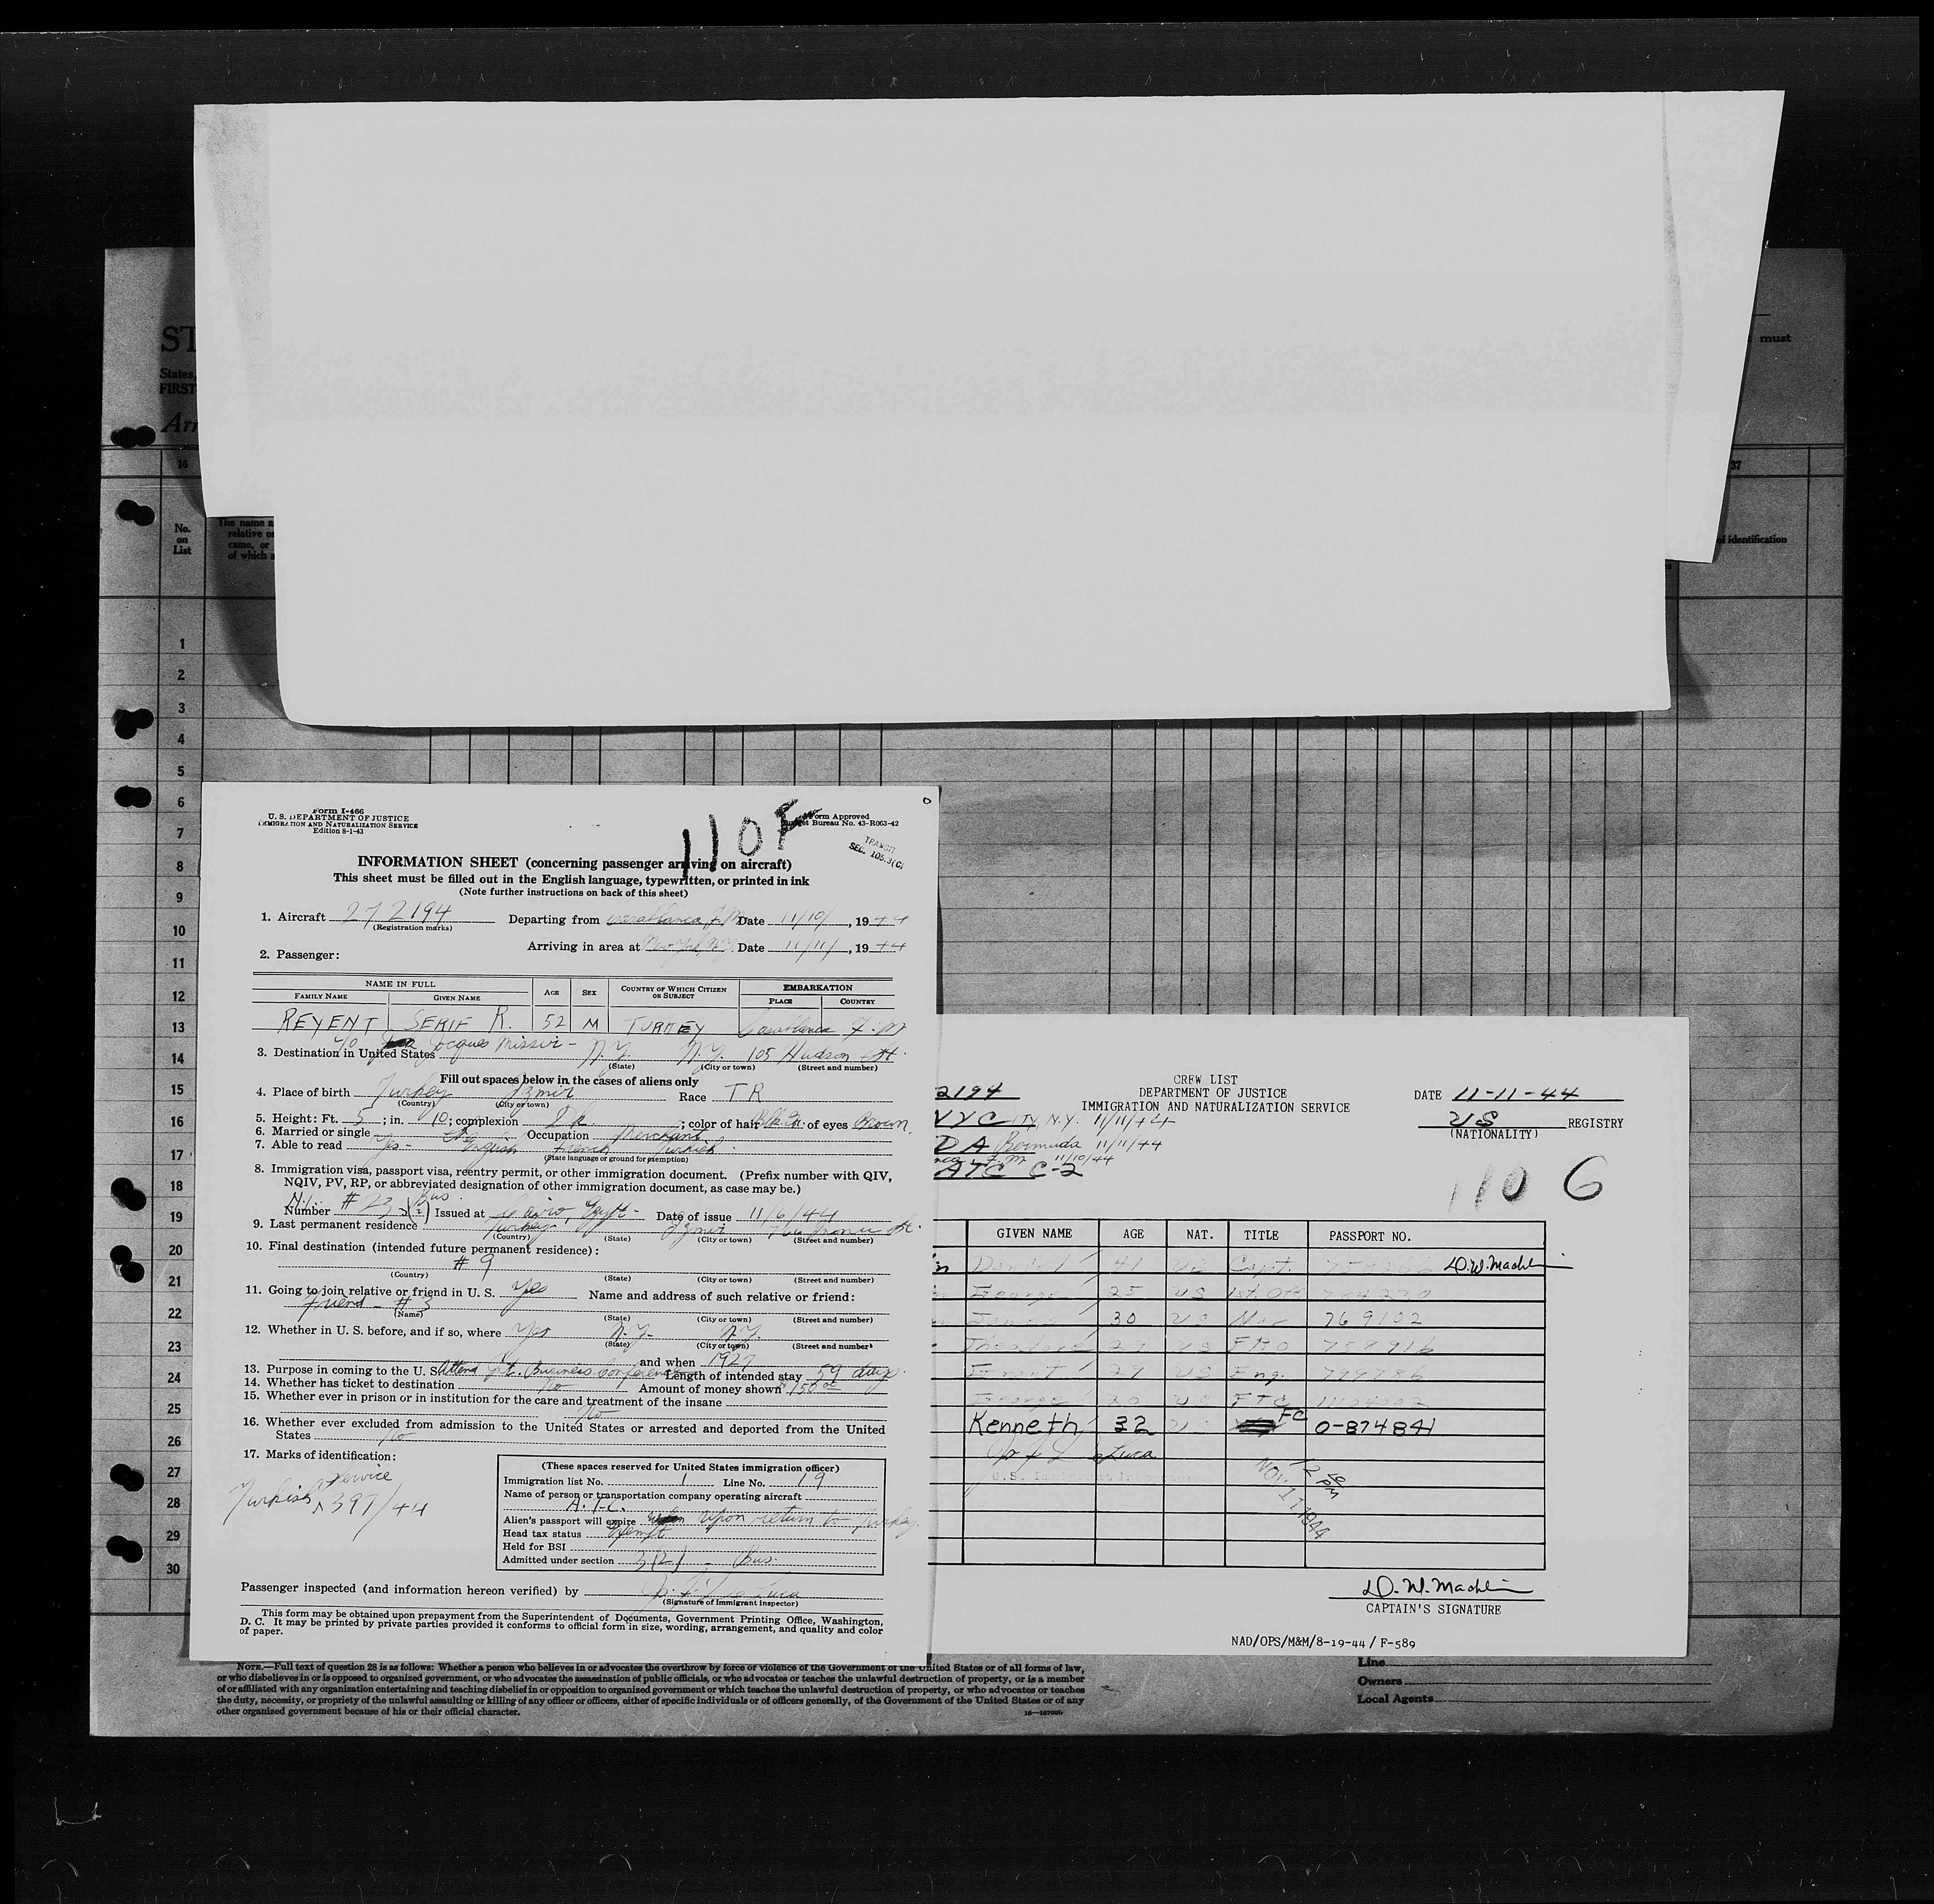 ST
States,
FIRST
Arr
must
16
37
No.
on
List
The name a
relative or
came, or
of which a
of identification
1
2
3
4
5
6
7
8
9
10
11
12
13
14
15
16
17
18
19
20
21
22
23
24
25
26
27
28
29
30
Form I-466
U. S. DEPARTMENT OF JUSTICE
IMMIGRATION AND NATURALIZATION SERVICE
Edition 8-1-43
110 F
Form Approved
Budget Bureau No. 43-R063-42
TRANSIT
SEC. 105.3(C)
INFORMATION SHEET (concerning passenger arriving on aircraft)
This sheet must be filled out in the English language, typewritten, or printed in ink
(Note further instructions on back of this sheet)
1. Aircraft 272194 Departing from Casablanca, F.M. Date 11/10/, 1944
(Registration marks)
Arriving in area at New York, N.Y. Date 11/11/, 1944
2. Passenger:
NAME IN FULL AGE SEX COUNTRY OF WHICH CITIZEN OR SUBJECT EMBARKATION
FAMILY NAME GIVEN NAME PLACE COUNTRY
REYENT SERIF R. 52 M TURKEY Casablanca F.M
c/o Jacques Missir -
3. Destination in United States N.Y. N.Y. 105 Hudson St.
(State) (City or town) (Street and number)
Fill out spaces below in the cases of aliens only
4. Place of birth Turkey Izmir Race TR
(Country) (City or town)
5. Height: Ft. 5; in. 10; complexion Dk.; color of hair Blk. Gr. of eyes Brown.
6. Married or single Occupation Merchant
7. Able to read Yes - English French Turkish
(State language or ground for exemption)
8. Immigration visa, passport visa, reentry permit, or other immigration document. (Prefix number with QIV,
NQIV, PV, RP, or abbreviated designation of other immigration document, as case may be.)
Number # 23 Bus. Issued at Cairo, Egypt - Date of issue 11/6/44
9. Last permanent residence Turkey Izmir
(Country) (State) (City or town) (Street and number)
10. Final destination (intended future permanent residence):
# 9
(Country) (State) (City or town) (Street and number)
11. Going to join relative or friend in U. S. Yes Name and address of such relative or friend:
Friend - # 3
(Name) (State) (City or town) (Street and number)
12. Whether in U. S. before, and if so, where Yes N.Y. N.Y.
(State) (City or town) (Street and number)
and when 1927
13. Purpose in coming to the U. S. Attend Int. Business Conference Length of intended stay 59 days.
14. Whether has ticket to destination No Amount of money shown $150.00
15. Whether ever in prison or in institution for the care and treatment of the insane
No
16. Whether ever excluded from admission to the United States or arrested and deported from the United
States No
17. Marks of identification:
Turkish Service
397/44
(These spaces reserved for United States immigration officer)
Immigration list No. 1 Line No. 19
Name of person or transportation company operating aircraft
A.T.C.
Alien's passport will expire upon return to Turkey.
Head tax status Exempt
Held for BSI
Admitted under section 3(2) - Bus.
Passenger inspected (and information hereon verified) by
(Signature of immigrant inspector)
This form may be obtained upon prepayment from the Superintendent of Documents, Government Printing Office, Washington,
D. C. It may be printed by private parties provided it conforms to official form in size, wording, arrangement, and quality and color
of paper.
CREW LIST
DEPARTMENT OF JUSTICE
IMMIGRATION AND NATURALIZATION SERVICE
2194
NYC ITY, N.Y. 11/11/44
DA Bermuda 11/11/44
F.M 11/10/44
ATC C-2
DATE 11-11-44
US REGISTRY
(NATIONALITY)
110 6
GIVEN NAME AGE NAT. TITLE PASSPORT NO.
Daniel 41 US Capt. D.W. Machlin
George 25 US 1st Off
30 US Nav 769102
Theodore 29 US FRO 759916
Ernest 29 US Eng.
George US FTC
Kenneth 32 US FC 0-874841
U.S. Immigrant Inspector
NOV 11 1944
12
PM
D. W. Machlin
CAPTAIN'S SIGNATURE
NAD/OPS/M&M/8-19-44/F-589
NOTE.—Full text of question 28 is as follows: Whether a person who believes in or advocates the overthrow by force or violence of the Government of the United States or of all forms of law,
or who disbelieves in or is opposed to organized government, or who advocates the assassination of public officials, or who advocates or teaches the unlawful destruction of property, or is a member
of or affiliated with any organization entertaining and teaching disbelief in or opposition to organized government or which teaches the unlawful destruction of property, or who advocates or teaches
the duty, necessity, or propriety of the unlawful assaulting or killing of any officer or officers, either of specific individuals or of officers generally, of the Government of the United States or of any
other organized government because of his or their official character.
Line
Owners
Local Agents